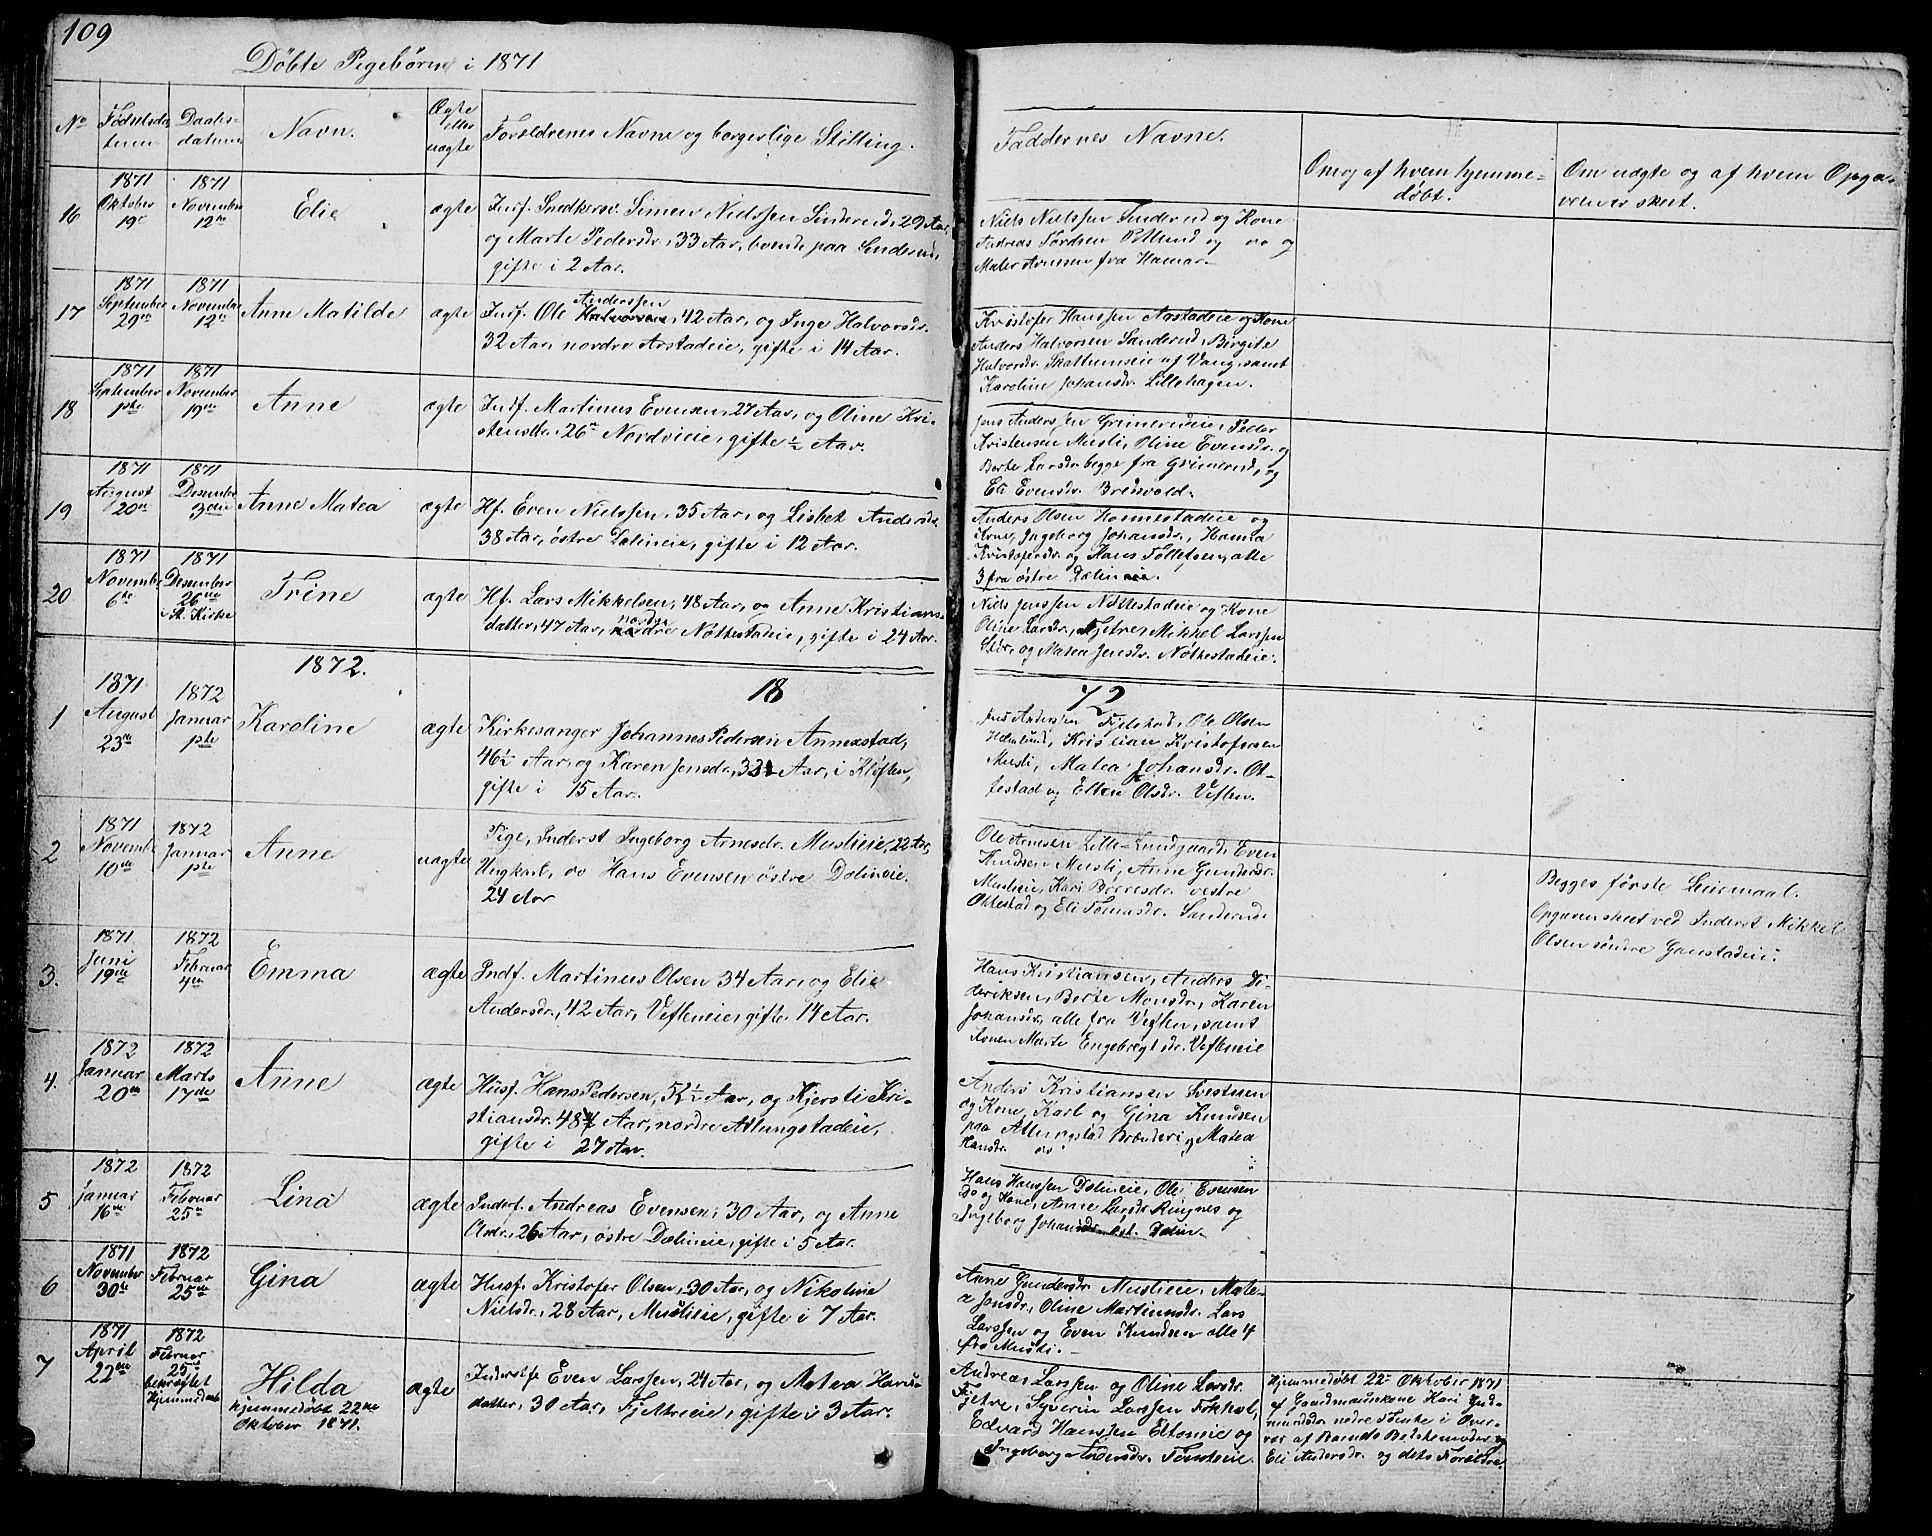 109
Døbte Pigebørn i 1871
No
Fødselsda-
tum
Daabs-
datum
Navn.
Ægte
eller
uægte
Forældrenes Navne og borgerlige Stilling.
Faddernes Navne.
Om og af hvem hjemme-
døbt.
Om uægte og af hvem Opga-
ven er skeet.
16
1871
Oktober
19de
1871
November
12te
Elie
ægte
Inds. Snedkersv. Simen Nielssen Sinderud, 29 Aar,
og Marte Pedersdr., 33 Aar, boende paa Sinderud,
gifte i 2 Aar.
Niels Nielssen Sinderud og Kone
Andreas Tordsen og
Mater Arnesen fra Hamar.
17
1871
September
29de
1871
November
12te
Anne Matilde
ægte
Anderssen
Inds. Ole Halvorsen, 42 Aar, og Inge Halvorsdr.
32 Aar, nordre Arstadeie, gifte i 14 Aar.
Kristofer Hanssen Arstadeie og Kone
Anders Halvorsen Sanderud, Birgite
Halvorsdr. Skattumseie af Vang, samt
Karoline Johansdr. Lillehagen.
18
1871
September
1ste
1871
November
19de
Anne
ægte
Inds. Martinus Evensen, 27 Aar, og Oline Kri-
stensdr., 26 Nordvieie, gifte ½ Aar.
Jens Anderssen Grimerudeie, Peder
Kristensen Musli, Oline Evensdr. og
Berte Larsdr. begge fra Grimerud, og
Eli Evensdr. Brenvold.
19
1871
August
20de
1871
Desember
3die
Anne Matea
ægte
Hf. Even Nielssen, 35 Aar, og Lisbet Andersdr.
38 Aar, østre Dælineie, gifte i 12 Aar.
Anders Olsen Hommestadeie og
Kone, Ingeborg Johansdr., Hanna
Kristofersdr. og Hans Tollefsen, alle
3 fra østre Dælineie.
20
1871
November
6te
1871
Desember
26de
St. Kirke
Trine
ægte
Hf. Lars Mikkelsen, 48 Aar, og Anne Kristians-
nordre
datter, 47 Aar, nordre Nøttestadeie, gifte i 24 Aar.
Niels Jenssen Nøttestadeie og Kone
Oline Larsdr., Fjetre, Mikkel Larssen
Stor, og Matea Jensdr. Nøttestadeie.
1872.
18
72
1
1871
August
23de
1872
Januar
1ste
Karoline
ægte
Kirkesanger Johannes Pedersen Annexstad,
46½ Aar, og Karen Jensdr., 33 Aar, i Kløften,
gifte i 15 Aar.
Jens Anderssen Fjelstad, Ole Olsen
Hemlund, Kristian Kristofersen
Musli, Matea Johansdr. Ot-
testad og Ellen Olsdr. Veflen.
2
1871
November
10de
1872
Januar
1ste
Anne
uægte
Pige, Inderst Ingeborg Arnesdr. Muslieie, 22 Aar,
Ungkarl, do Hans Evensen østre Dælineie.
24 Aar
Ole Arnesen Lille-Lundgaard, Even
Knudsen Musli, Anne Gundersdr.
Muslieie, Kari Børresdr. vestre
Ottestad og Eli Tomasdr. Sanderud.
Begges første Leiermaal.
Opgaven skeet ved Inderst Mikkel
Olsen søndre Gaustadeie.
3.
1871
Juni
19de
1872
Februar
4de
Emma
ægte
Indf. Martinus Olsen 34 Aar, og Elie
Andersdr., 42 Aar, Vefleneie, gifte 14 Aar.
Hans Kristiansen, Anders Di-
deriksen, Berte Monsdr., Karen
Johansdr., alle fra Veflen, samt
Konen Marte Engebregtsdr. Vefleneie
4.
1872
Januar
20de
1872
Marts
17de
Anne
ægte
Husf. Hans Pedersen, 51½ Aar, og Kjersti Kri-
stiansdr. 48 Aar, nordre Atlungstadeie,
gifte i 27 Aar.
Anders Kristiansen Svestuen
og Kone, Karl og Gina Knudsen
paa Atlungstad Brænderi og Matea
Hansdr. do
5
1872
Januar
16de
1872
Februar
25de
Lina
ægte
Inderst. Andreas Evensen, 30 Aar, og Anne
Olsdr., 26 Aar, østre Dælineie, gifte i 5 Aar.
Hans Hanssen Dælineie, Ole Evensen
Do og Kone, Anne Larsdr. Ringnes og
Ingeborg Johansdr. øst. Dælin.
6
1871
November
30te
1872
Februar
25de
Gina
ægte
Husf. Kristofer Olsen, 30 Aar, og Nikoline
Nielsdr., 28 Aar, Muslieie, gifte i 7 Aar.
Anne Gundersdr. Muslieie, Mate-
a Jensdr., Oline Martinusdr. Lars
Larssen og Even Knudsen alle 4
fra Musli.
7
1871
April
22de
1872
Februar
25de
bekræftet
Hjemmedaab
Hilda
hjemmedøbt 22de
Oktober 1871.
ægte
Inderstf. Even Larssen, 24 Aar, og Matea Hans-
datter, 30 Aar, Fjetreeie, gifte i 3 Aar.
Andreas Larssen og Oline Larsdr.
Fjetre, Syverin Larssen Fokhol,
Edvard Hanssen Eltoneie og
Ingeborg Andersdr. Tømteeie.
Hjemmedøbt 22de Oktober 1871
af Gaardmandskone Kari Gud-
mundsdr. nedre Tømte i Over-
vær af Barnets Bedstemoder
Eli Andersdr. og dets Forældre.